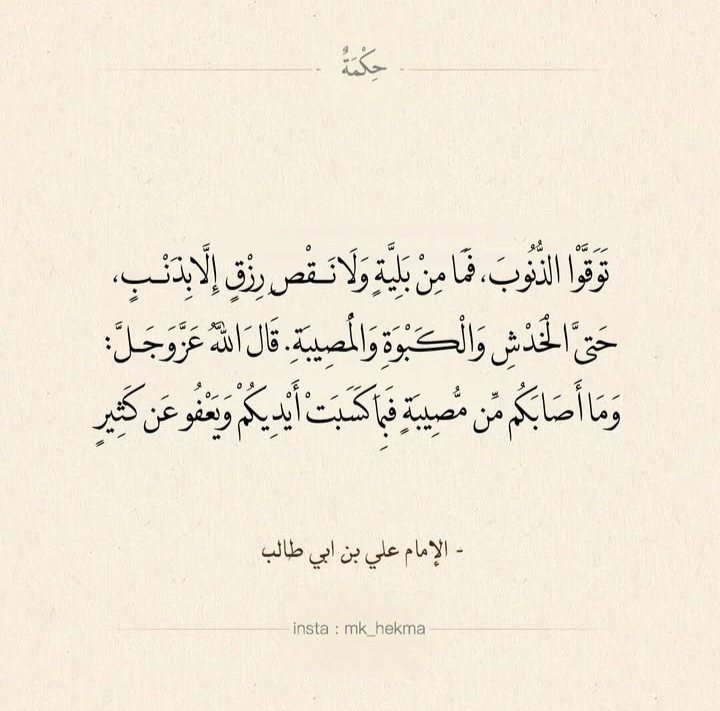 حِكْمَةٌ
تَوَقَّوْا الذُّنُوبَ، فَمَا مِنْ بَلِيَّةٍ وَلَا نَقْصِ رِزْقٍ إِلَّا بِذَنْبٍ،
حَتَّى الْخَدْشِ وَالْكَبْوَةِ وَالْمُصِيبَةِ. قَالَ اللَّهُ عَزَّ وَجَلَّ:
وَمَا أَصَابَكُم مِّن مُّصِيبَةٍ فَبِمَا كَسَبَتْ أَيْدِيكُمْ وَيَعْفُو عَن كَثِيرٍ
- الإمام علي بن ابي طالب
insta : mk_hekma